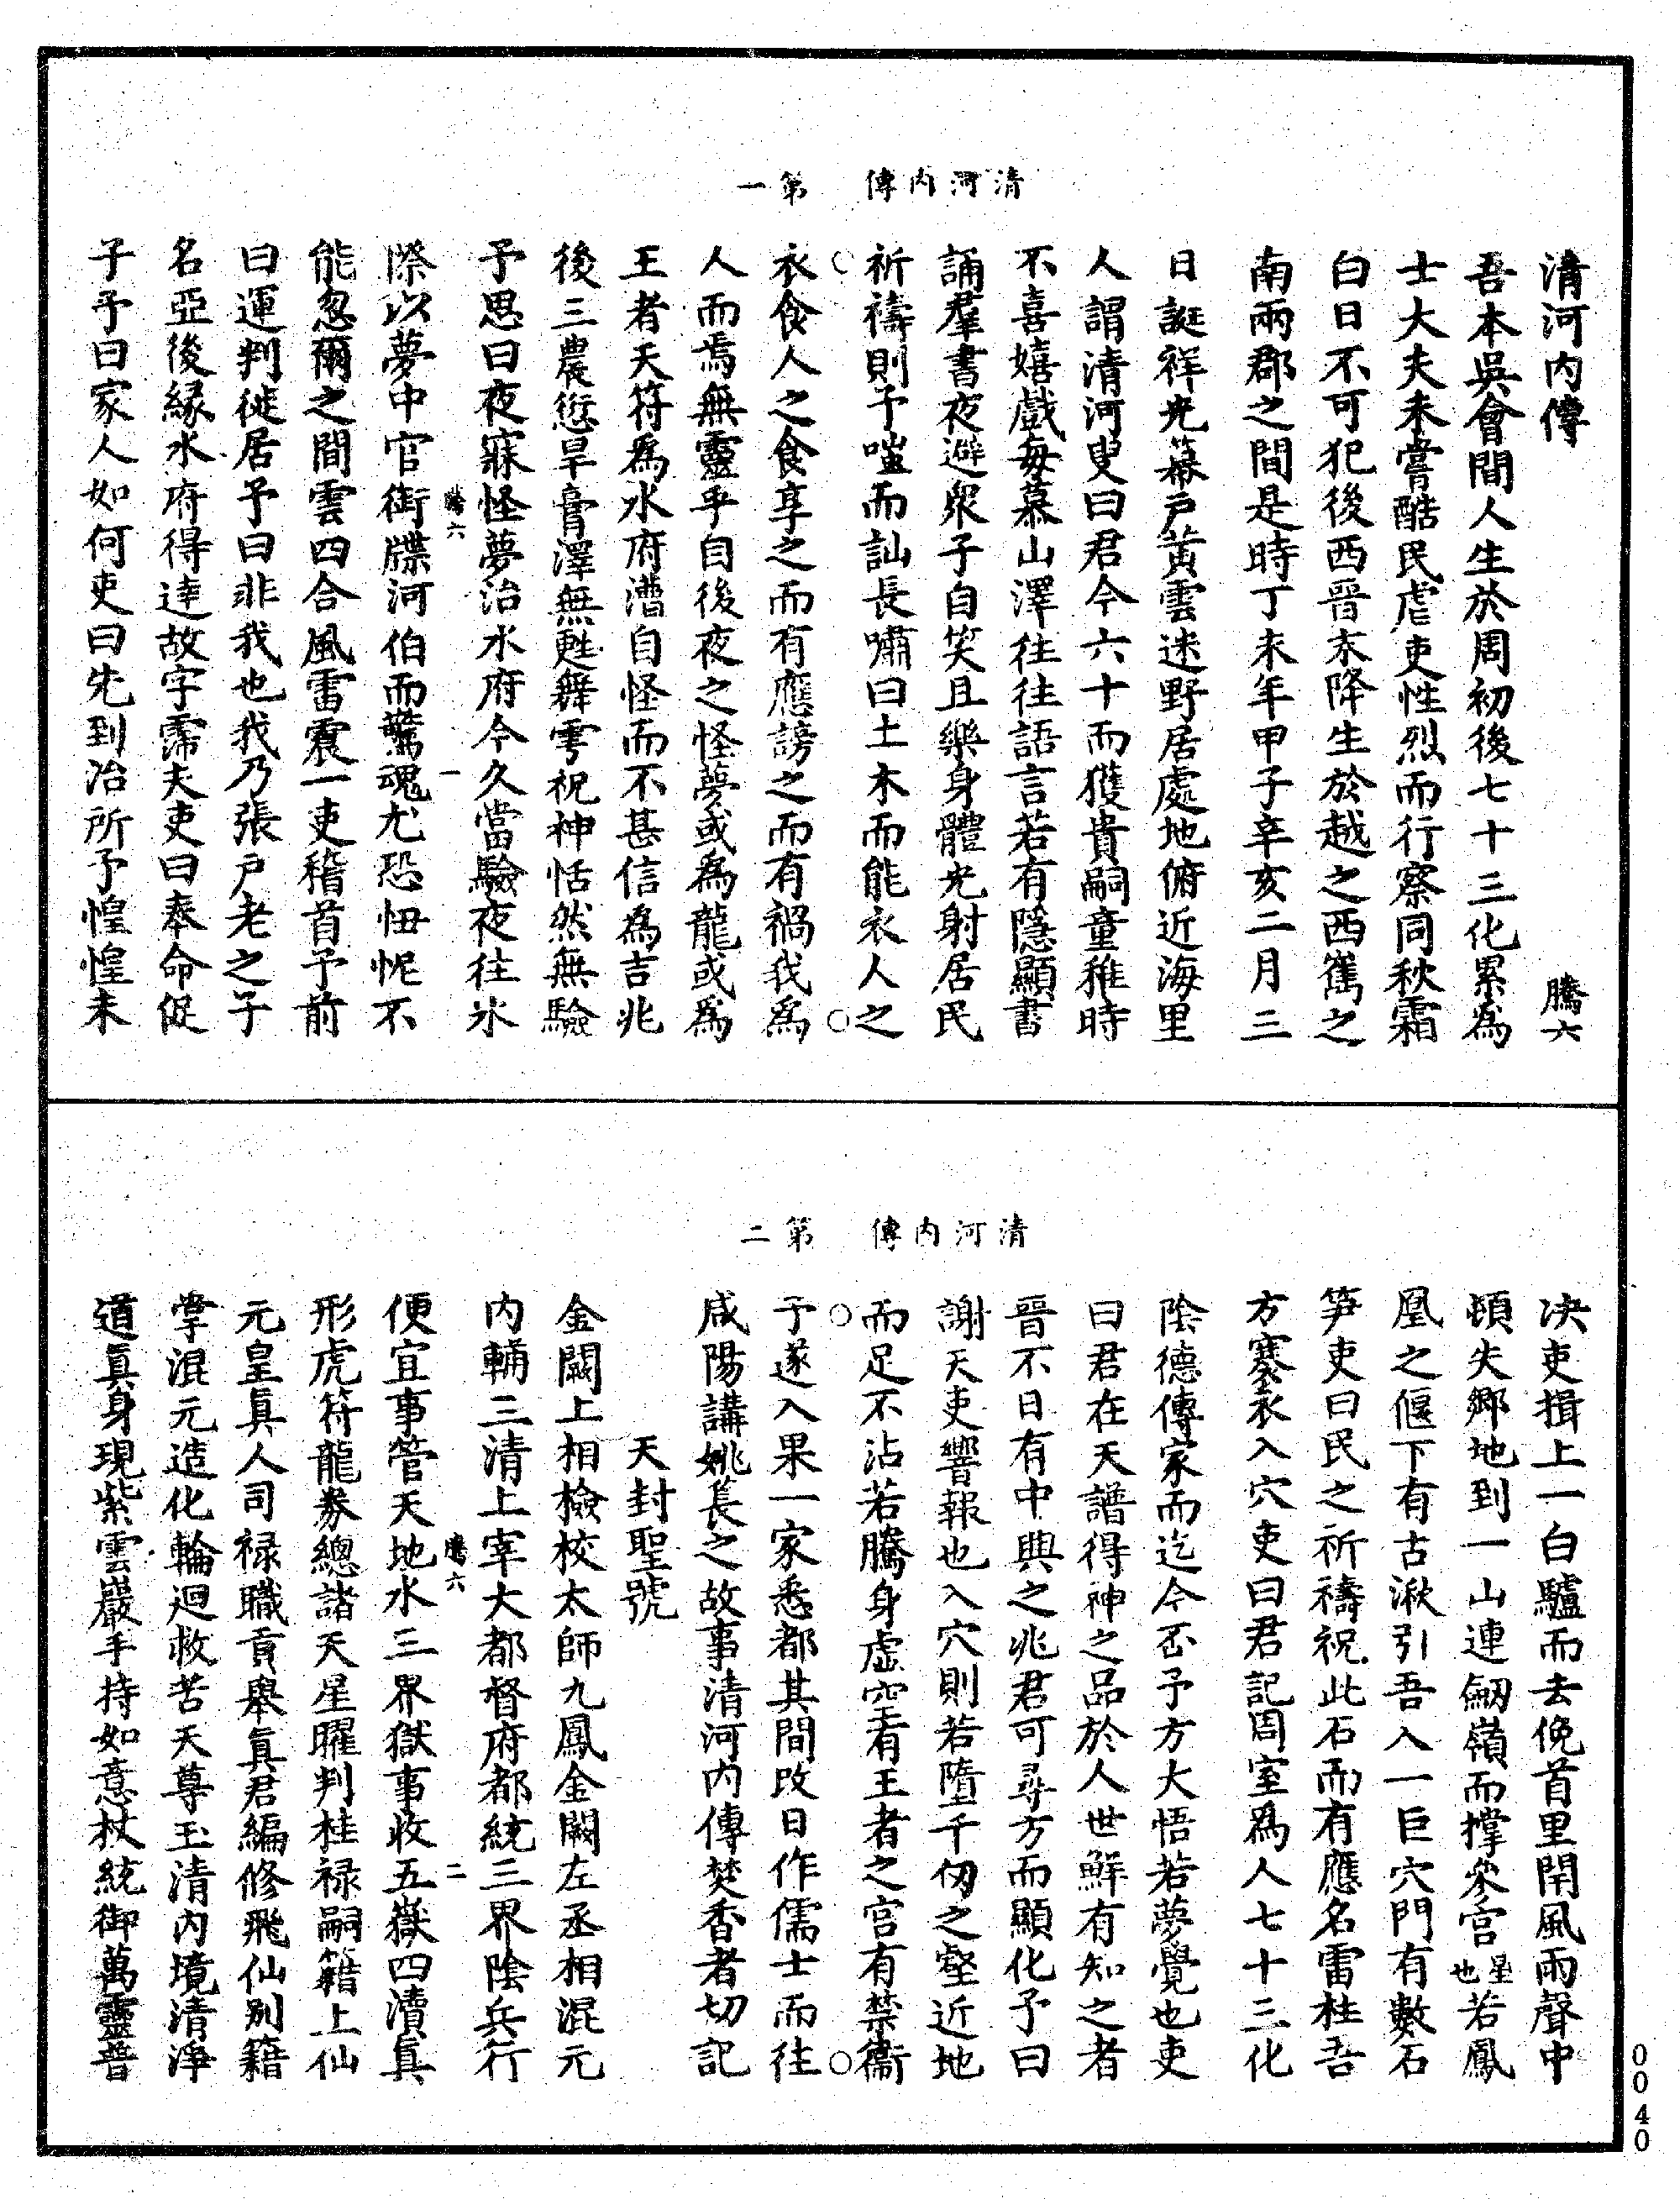 清河內傳　第一
清河內傳　騰六
吾本吳會間人生於周初後七十三化累爲
士大夫未嘗酷民虐吏性烈而行察同秋霜
白日不可犯後西晉末降生於越之西嶲之
南兩郡之間是時丁未年甲子辛亥二月三
日誕祥光幕戶黃雲迷野居處地俯近海里
人謂清河叟曰君今六十而獲貴嗣童稚時
不喜嬉戲每慕山澤往往語言若有隱顯書
誦羣書夜避衆子自笑且樂身體光射居民
祈禱則予嗤而訕長嘯曰土木而能衣人之
衣食人之食享之而有應謗之而有禍我爲
人而焉無靈乎自後夜之怪夢或爲龍或爲
王者天符爲水府漕自怪而不甚信爲吉兆
後三農愆旱膏澤無甦舞雩祝神恬然無驗
予思曰夜寐怪夢治水府今久當驗夜往水
騰六　一
際以夢中官銜牒河伯而驚魂尤恐忸怩不
能忽爾之間雲四合風雷震一吏稽首予前
曰運判徙居予曰非我也我乃張戶老之子
名亞後緣水府得達故字霈夫吏曰奉命促
子予曰家人如何吏曰先到治所予惶惶未
清河內傳　第二
決吏揖上一白驢而去俛首里閈風雨聲中
頓失鄉地到一山連劒嶺而撑參宮星也若鳳
凰之偃下有古湫引吾入一巨穴門有數石
笋吏曰民之祈禱祝此石而有應名雷柱吾
方褰衣入穴吏曰君記周室爲人七十三化
陰德傳家而迄今否予方大悟若夢覺也吏
曰君在天譜得神之品於人世鮮有知之者
晉不日有中興之兆君可尋方而顯化予曰
謝天吏響報也入穴則若墮千仞之壑近地
而足不沾若騰身虛空看王者之宮有禁衞
予遂入果一家悉都其間改日作儒士而往
咸陽講姚萇之故事清河內傳焚香者切記
天封聖號
金闕上相檢校太師九鳳金闕左丞相混元
內輔三清上宰大都督府都統三界陰兵行
騰六　二
便宜事管天地水三界獄事收五嶽四瀆眞
形虎符龍券總諸天星曜判桂祿嗣籍上仙
元皇眞人司祿職貢舉眞君編修飛仙別籍
掌混元造化輪迴救苦天尊玉清內境清淨
道眞身現紫雲巖手持如意杖統御萬靈普
0040